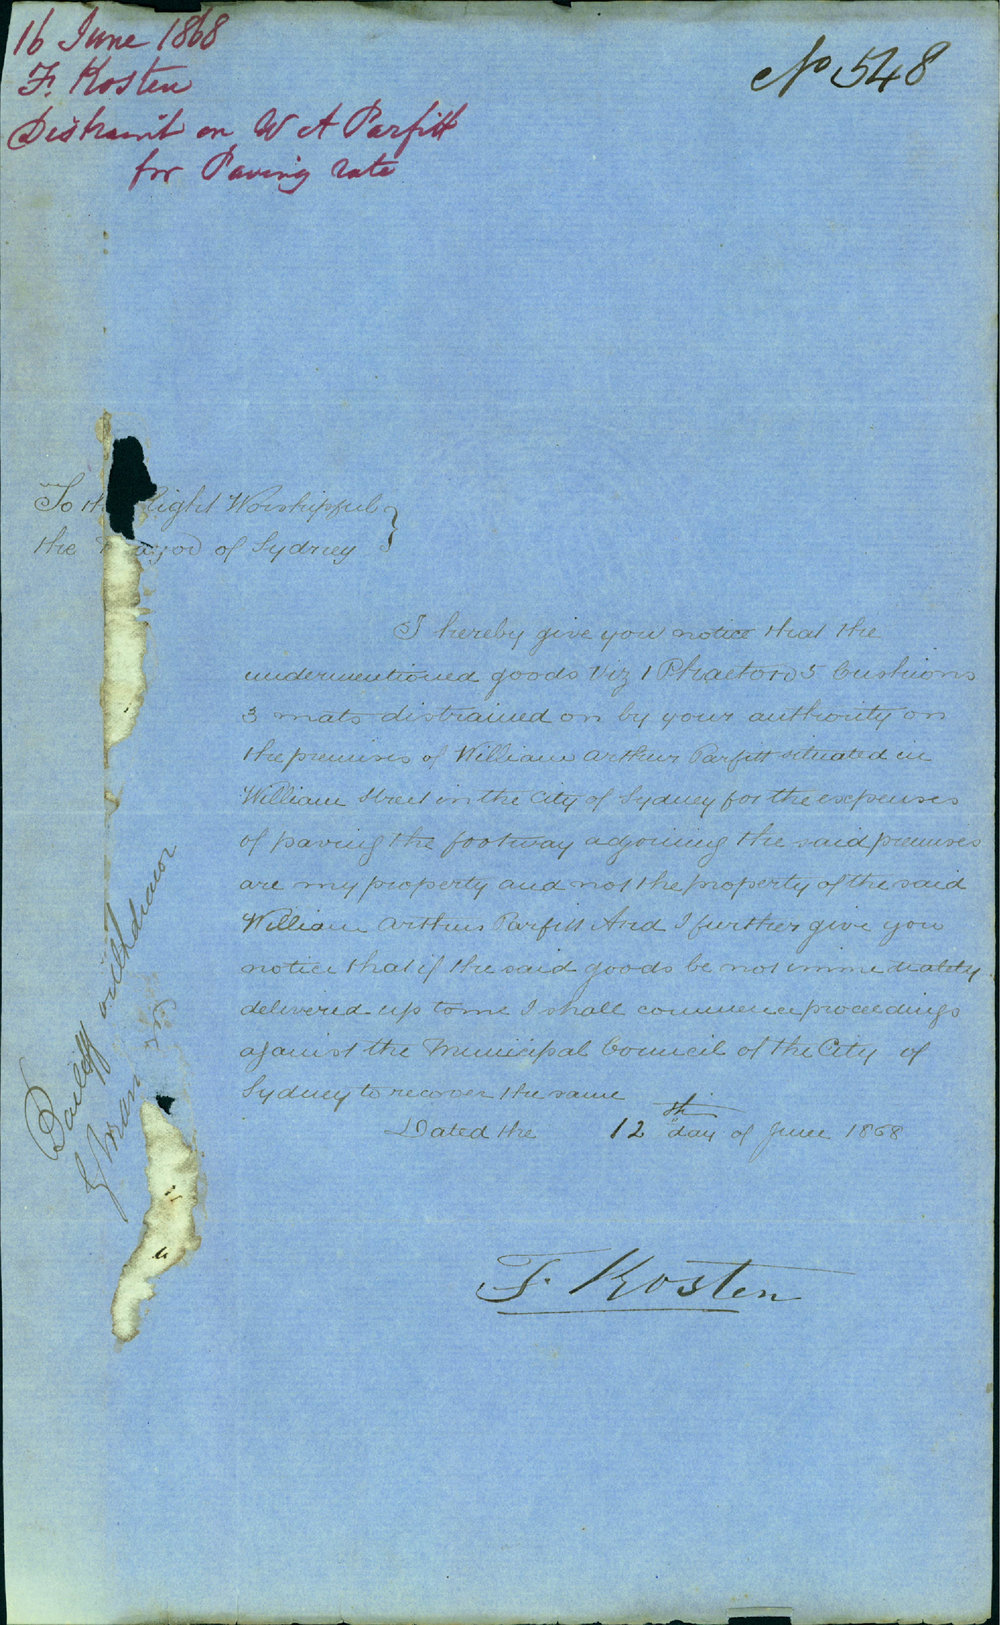 16 June 1868
F. Kosten
Distraint on W A Parfitt
for Paving rate
No 548
To the Right Worshipful
the Mayor of Sydney
I hereby give you notice that the
undermentioned goods Viz 1 Phaeton 5 Cushions
3 mats distrained on by your authority on
the premises of William Arthur Parfitt situated in
William Street in the City of Sydney for the expenses
of paving the footway adjoining the said premises
are my property and not the property of the said
William Arthur Parfitt And I further give you
notice that if the said goods be not immediately
delivered up to me I shall commence proceedings
against the Municipal Council of the City of
Sydney to recover the same
Dated the 12th day of June 1868
F. Kosten
Bailiff withdrawn